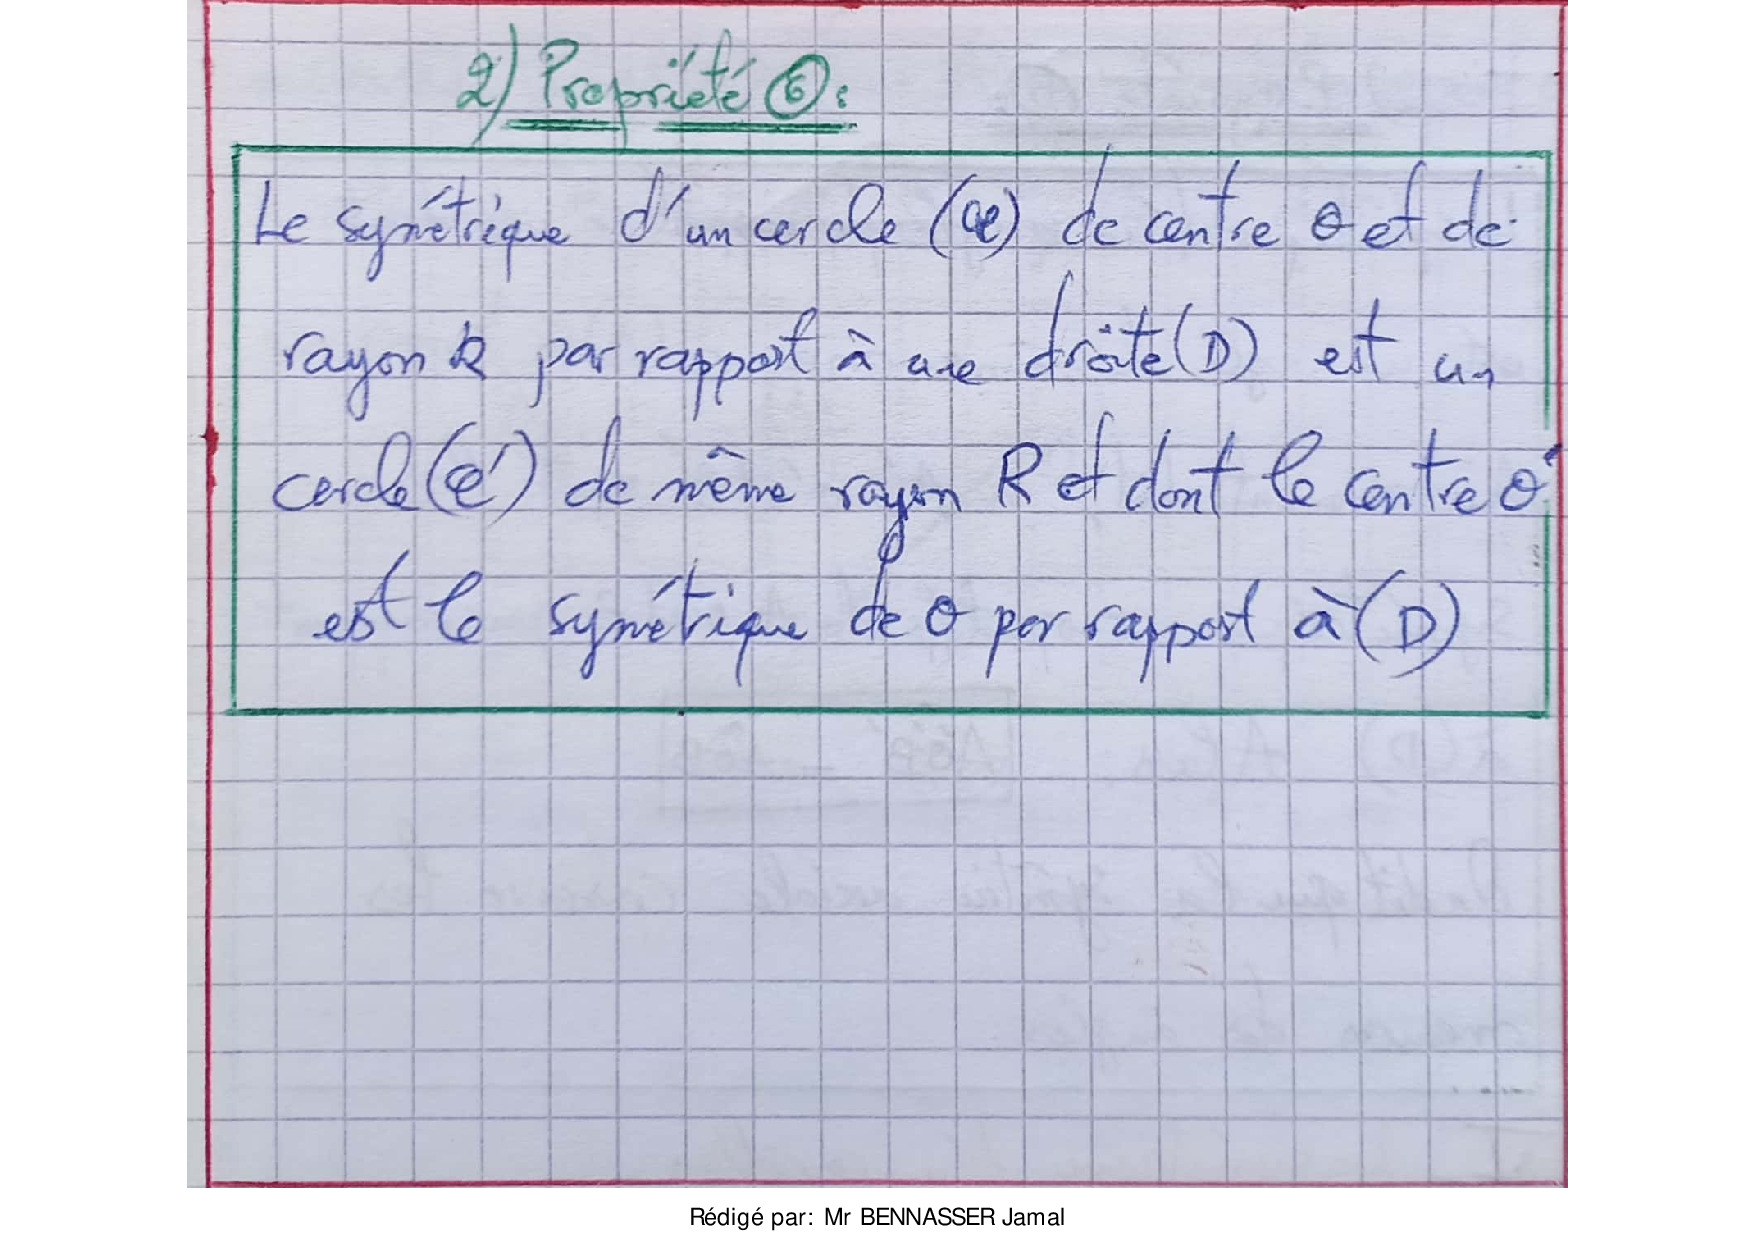 2) Propriété 6 :
Le symétrique d'un cercle (C) de centre O et de
rayon R par rapport à une droite (D) est un
cercle (C') de même rayon R et dont le centre O'
est le symétrique de O par rapport à (D)
Rédigé par: Mr BENNASSER Jamal